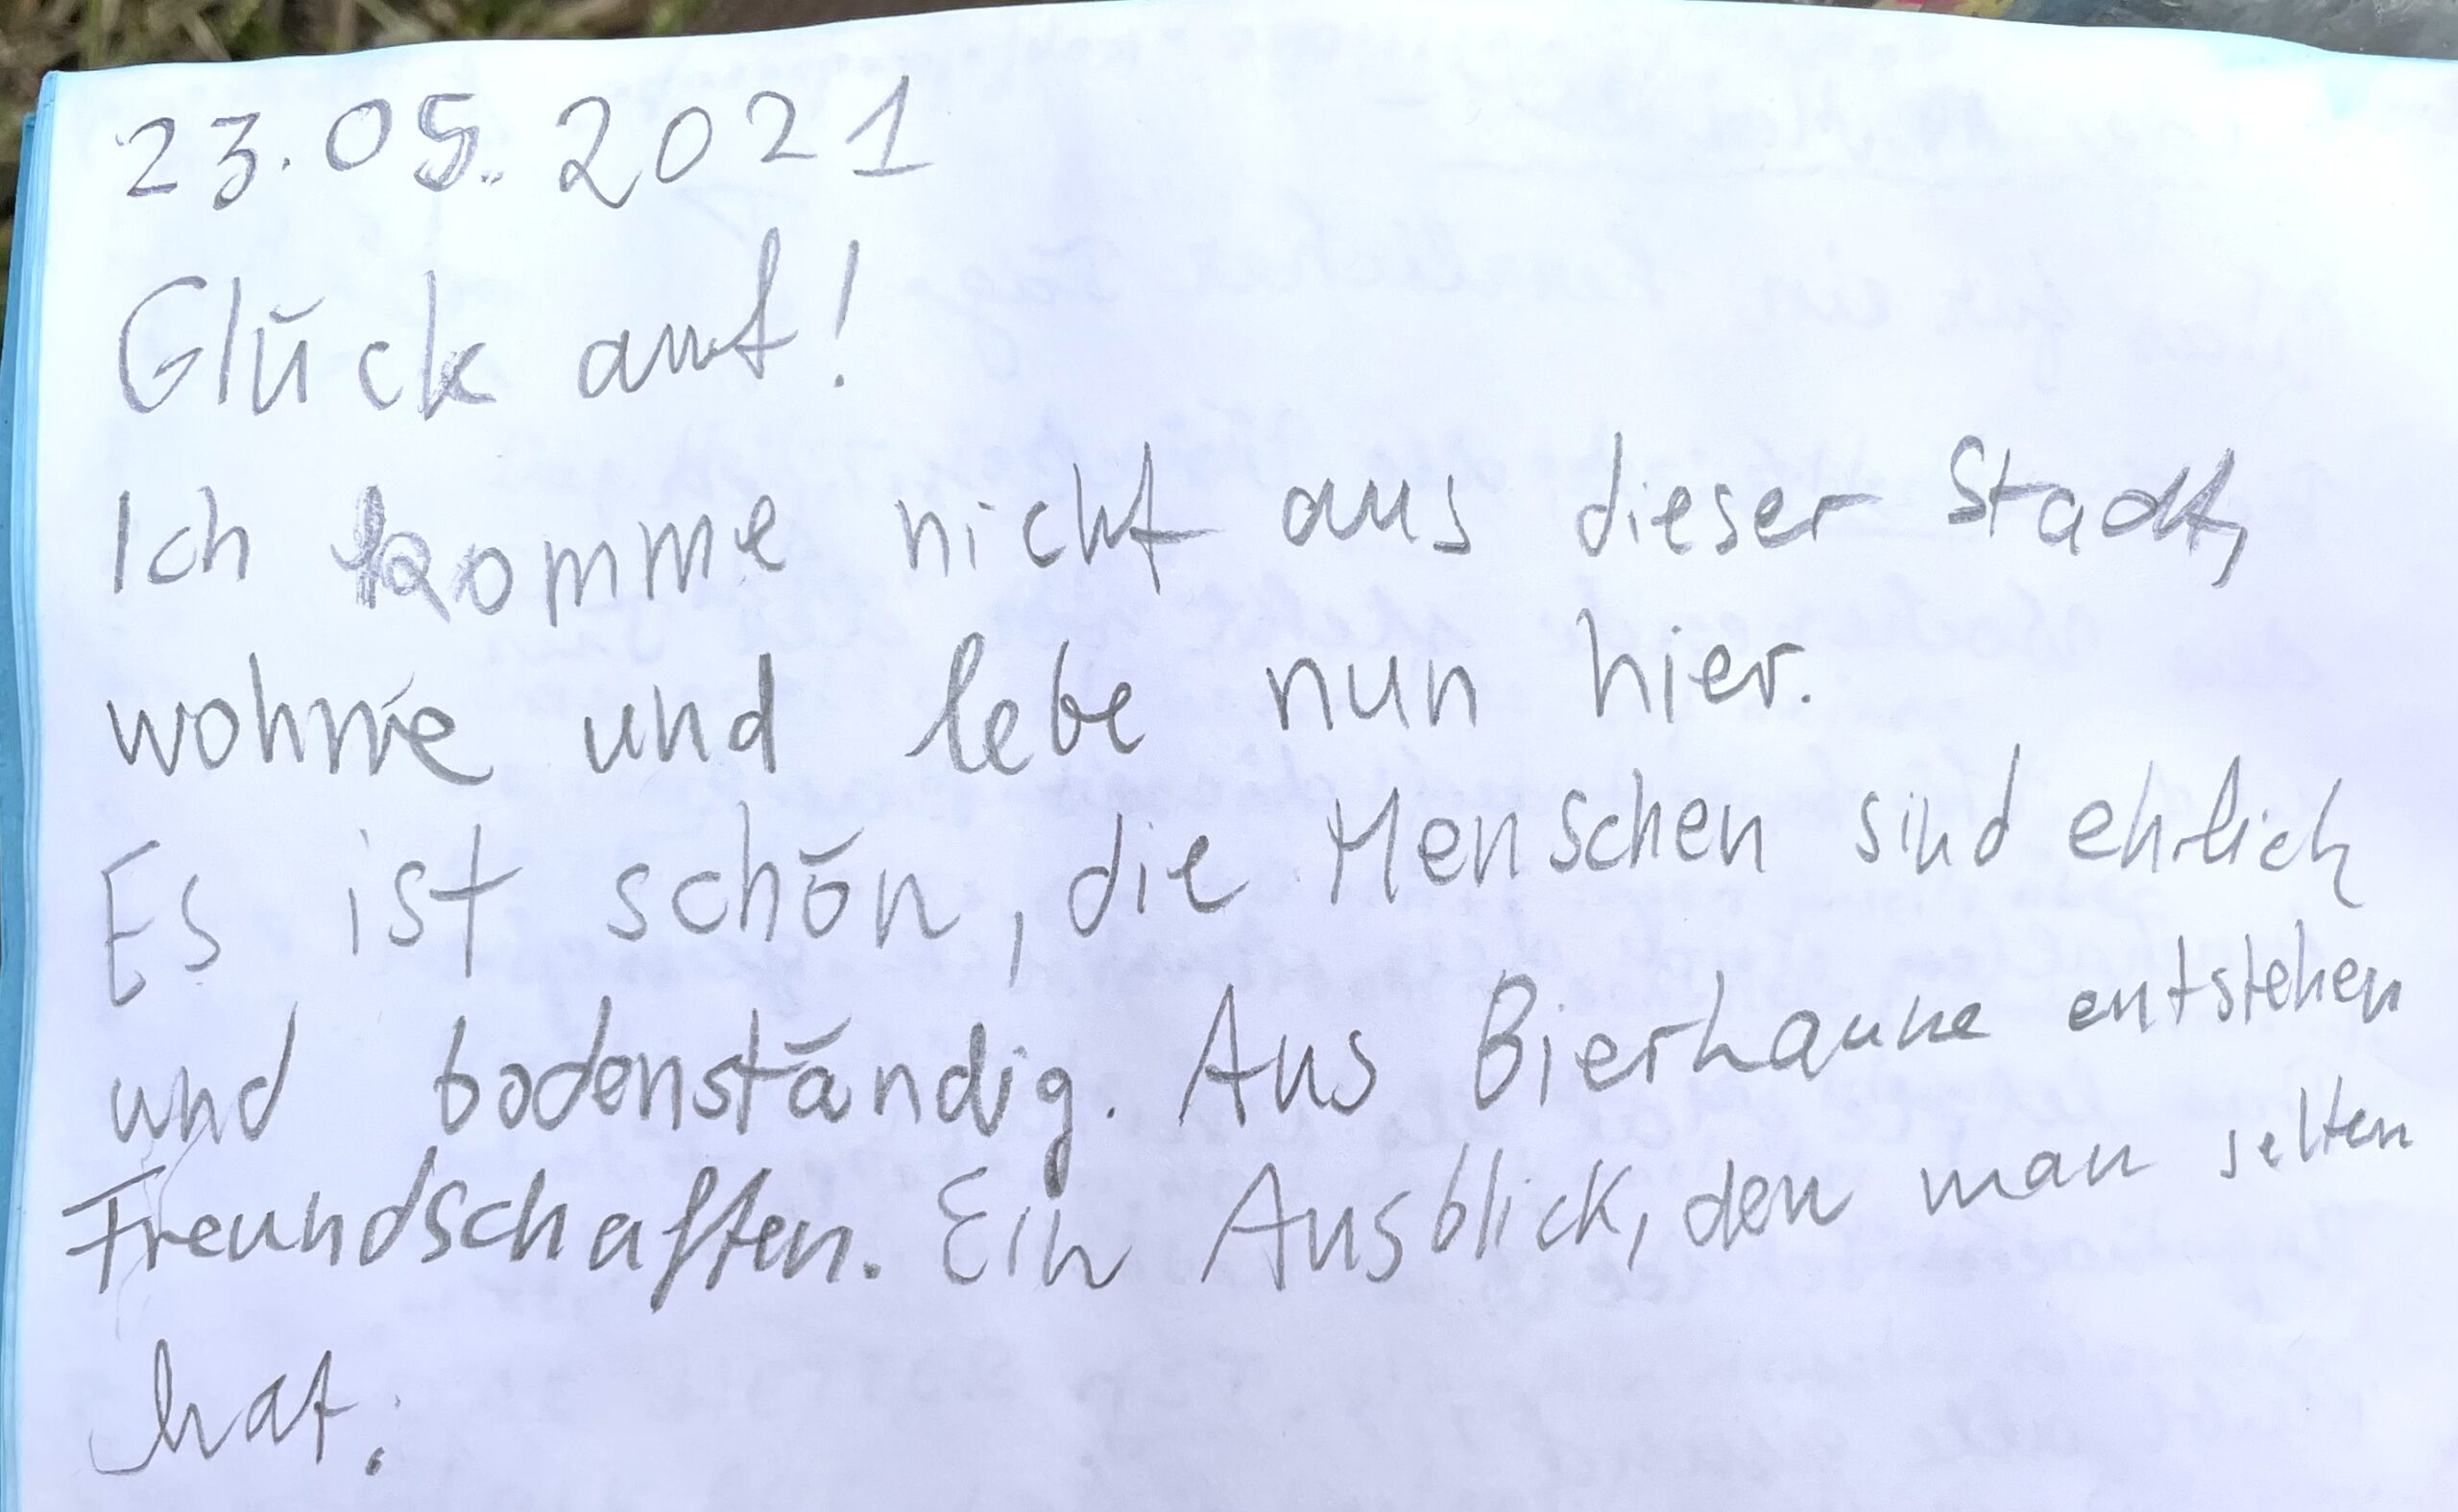 23.05.2021
Glück auf!
Ich komme nicht aus dieser Stadt,
wohne und lebe nun hier.
Es ist schön, die Menschen sind ehrlich
und bodenständig. Aus Bierlaune entstehen
Freundschaften. Ein Ausblick, den man selten
hat.